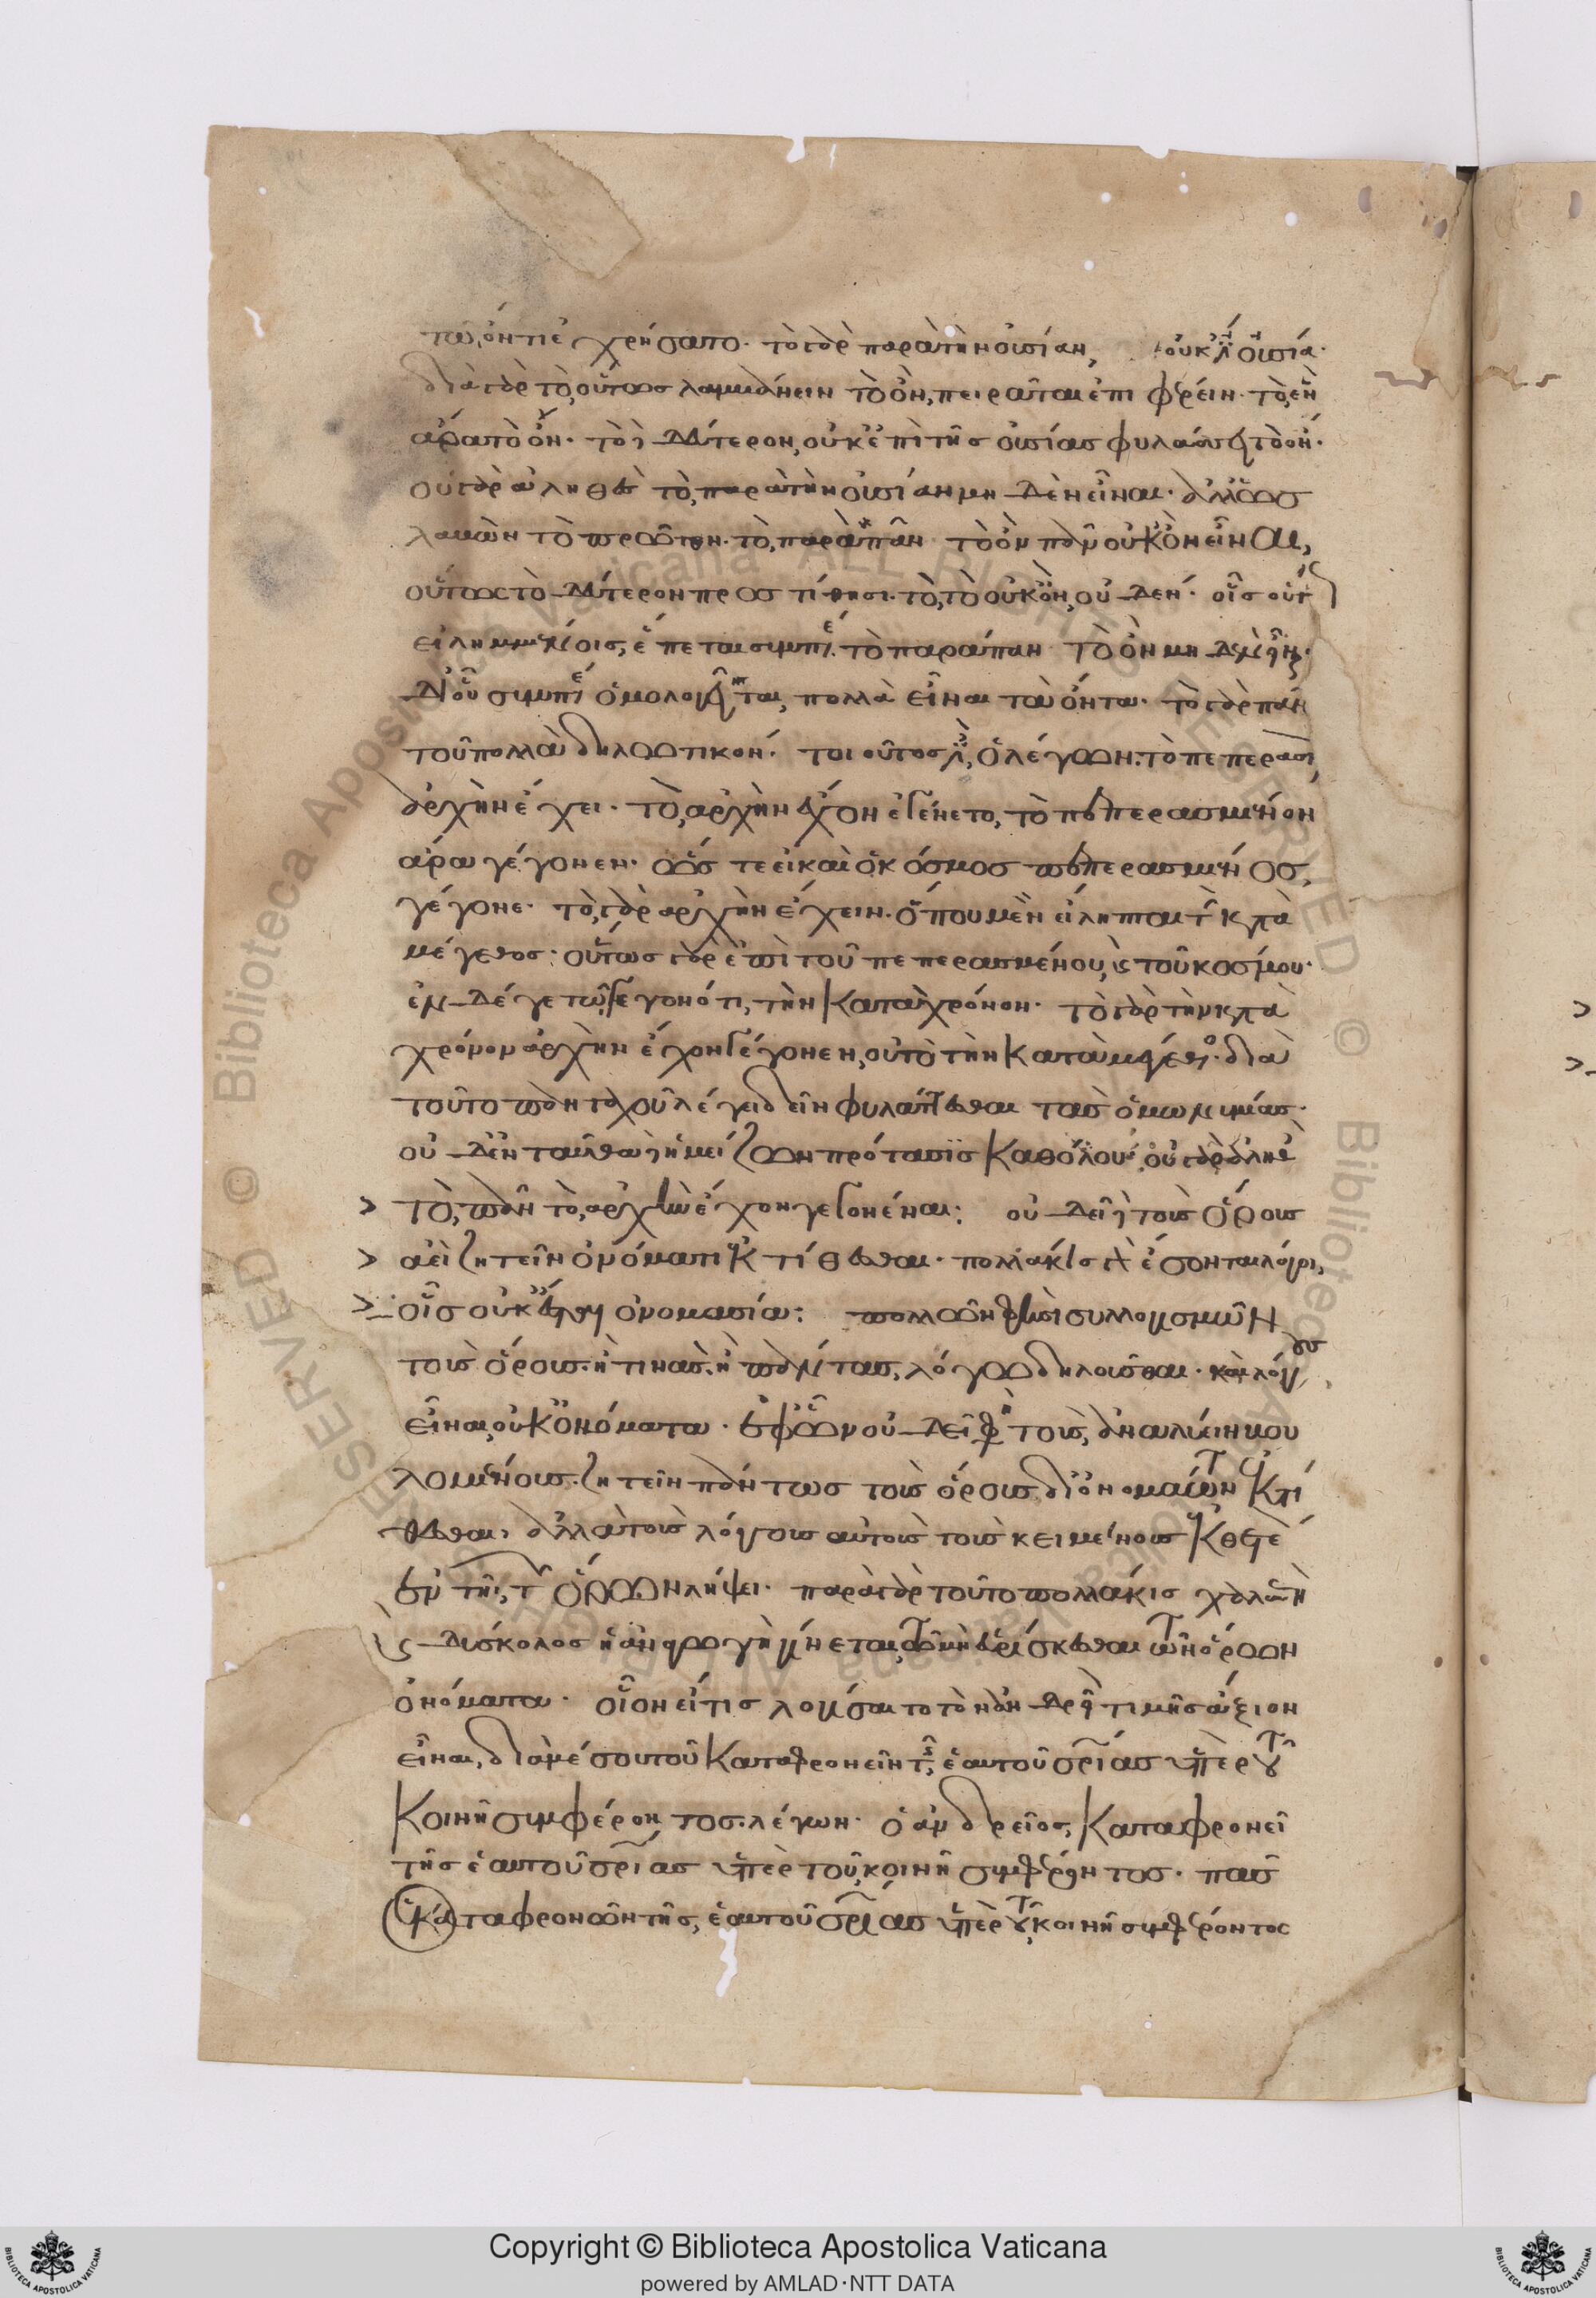 τῶ ὄντι ἐχρήσατο. τὸ γὰρ παρὰ τὴν οὐσίαν, οὐκ ἔστιν οὐσία.
διὰ γὰρ τὸ, οὕτως λαμβάνειν τὸ ὄν, πειρᾶται ἐπιφέρειν. τὸ, ἓν
ἄρα τὸ ὄν. τὸ δὲ δεύτερον, οὐκέτι ἐπὶ τῆς οὐσίας φυλάσσει τὸ ὄν.
οὐ γὰρ ἀληθὲς τὸ, παρὰ τὴν οὐσίαν μηδὲν εἶναι. ἀλλ' ὡς
λαβὼν τὸ πρῶτον. τὸ, παρὰ πᾶν τὸ ὂν πᾶν οὐκ ὂν εἶναι,
οὕτως τὸ δεύτερον προστίθησι. τὸ, τὸ οὐκ ὄν, οὐδέν. οἷς οὖν
εἰλημμένοις, ἕπεται συμπέρασμα τὸ παρὰ πᾶν τὸ ὂν μηδὲν εἶναι.
δι' οὗ συμπεράσματος ὁμολογεῖται, πολλὰ εἶναι τὰ ὄντα. τὸ γὰρ πᾶν
τοῦ πολλὰ δηλωτικόν. τοιοῦτός ἐστι, ὁ λέγων. τὸ πεπερασμένον
ἀρχὴν ἔχει. τὸ, ἀρχὴν ἔχον ἐγένετο, τὸ πεπερασμένον
ἄρα γέγονεν. ὥστε εἰ καὶ ὁ κόσμος πεπερασμένος,
γέγονε. τὸ, γὰρ ἀρχὴν ἔχειν. ὅπου μὲν εἴληπται τὴν κατὰ
μέγεθος· οὕτως γὰρ ἐπὶ τοῦ πεπερασμένου, καὶ τοῦ κόσμου.
ἐν δέ γε τῶ, γεγονότι, τὴν κατὰ χρόνον. τὸ γὰρ τὴν κατὰ
χρόνον ἀρχὴν ἔχον γέγονεν, οὐ τὸ τὴν κατὰ μέγεθος. διὰ
τοῦτο πανταχοῦ λέγει δεῖν φυλάττεσθαι τὰς ὁμωνυμίας.
οὐδὲ ἐνταῦθα δὲ ἡ μείζων πρότασις καθόλου. οὐ γὰρ ἀληθὲς
> τὸ, πᾶν τὸ, ἀρχὴν ἔχον γεγονέναι: οὐ δεῖ δὲ τοὺς ὅρους
> ἀεὶ ζητεῖν ὀνόματι ἐκτίθεσθαι. πολλάκις γὰρ ἔσονται λόγοι,
> οἷς οὐ κεῖται ὀνομασία: πολλῶν φησι συλλογισμῶν
τοὺς ὅρους. ἢ τινὰς, ἢ πάντας, λόγω δηλοῦσθαι. καὶ λόγους
εἶναι, οὐκ ὀνόματα. ἐφ' ὧν οὐ δεῖ φησι τοὺς, ἀναλύειν βου
λομένους. ζητεῖν πάντως τοὺς ὅρους δι' ὀνομάτων ἐκτί
θεσθαι, ἀλλὰ τοὺς λόγους αὐτοὺς τοὺς κειμένους ἐκθετέον
ἐν τῆ, τῶν ὅρων λήψει. παρὰ γὰρ τοῦτο πολλάκις χαλεπὴ
καὶ δύσκολος ἡ ἀναγωγὴ γίνεται, τῶ μὴ εὑρίσκεσθαι τῶν ὅρων
ὀνόματα. οἷον εἴ τις λογίσαιτο τὸν ἀνδρεῖον τιμῆς ἄξιον
εἶναι, διὰ μέσου τοῦ καταφρονεῖν τῆς ἑαυτοῦ σωτηρίας ὑπὲρ τοῦ
κοινῆ συμφέροντος. λέγων. ὁ ἀνδρεῖος, καταφρονεῖ
τῆς ἑαυτοῦ σωτηρίας ὑπὲρ τοῦ κοινῆ συμφέροντος. πᾶς
ὁ καταφρονῶν τῆς, ἑαυτοῦ σωτηρίας ὑπὲρ τοῦ κοινῆ συμφέροντος
Copyright © Biblioteca Apostolica Vaticana
powered by AMLAD·NTT DATA